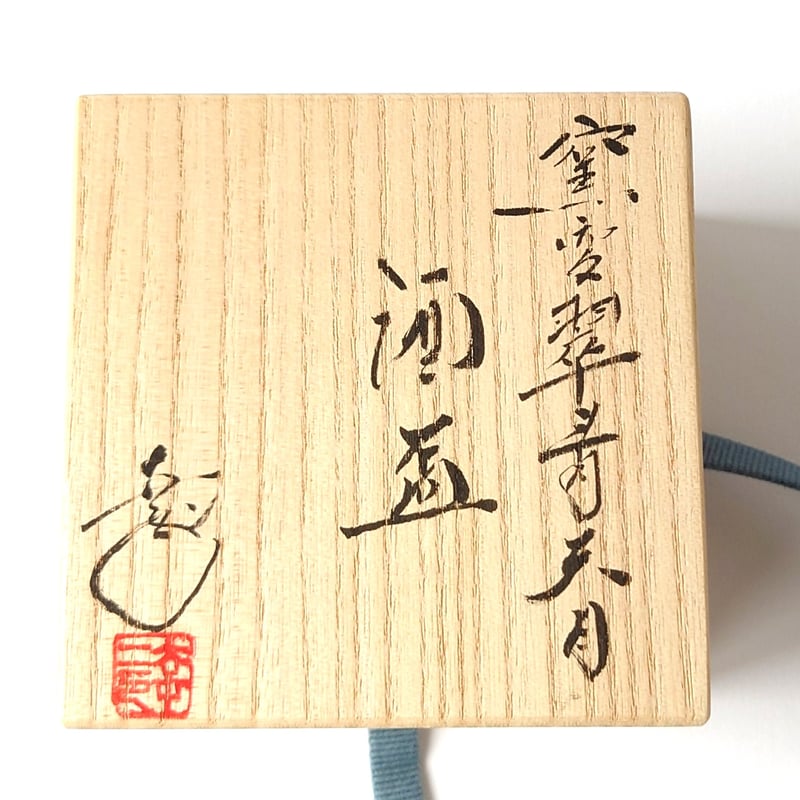 窯変翠青天目
酒盃